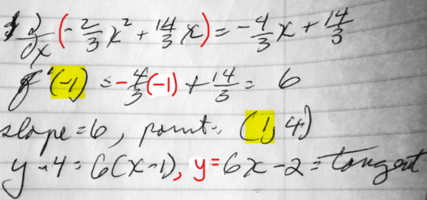 d/dx (-2/3 x² + 14/3 x) = -4/3 x + 14/3
f'(-1) = -4/3(-1) + 14/3 = 6
slope = 6, point: (1, 4)
y - 4 = 6(x-1), y = 6x - 2 = tangent